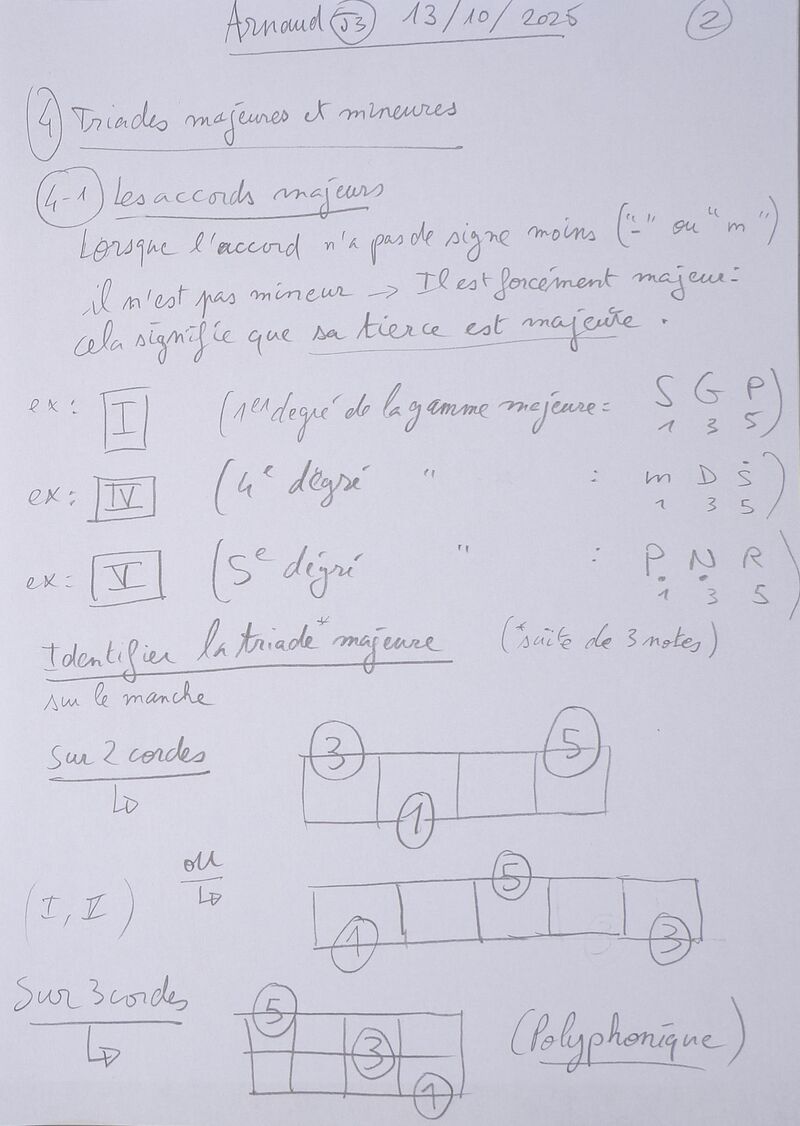 Arnaud J3 13/10/2025 2
4 Triades majeures et mineures
4-1 Les accords majeurs
Lorsque l'accord n'a pas de signe moins ("-" ou "m")
il n'est pas mineur → Il est forcément majeur:
cela signifie que sa tierce est majeure.
ex: I (1er degré de la gamme majeure= S G P
1 3 5)
ex: IV (4e degré " : m D Ṡ
1 3 5)
ex: V (5e degré " : P̣ Ṇ R
1 3 5)
Identifier la triade* majeure (*suite de 3 notes)
sur le manche
Sur 2 cordes
3 5
1
ou
5
(I, V)
1 3
Sur 3 cordes
5
3
1
(Polyphonique)